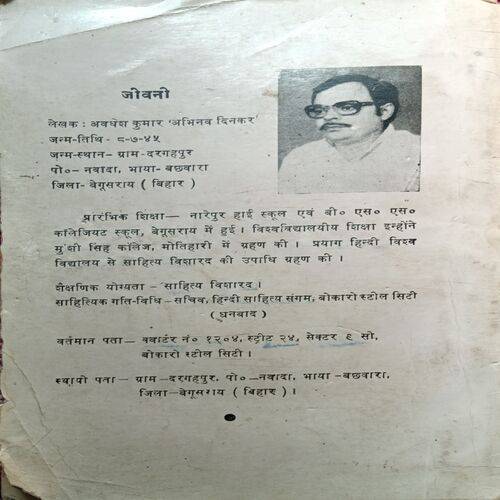 जीवनी
लेखक : अवधेश कुमार 'अभिनव दिनकर'
जन्म-तिथि - ८-७-४५
जन्म-स्थान- ग्राम-दरगहपुर
पो०- नवादा, भाया- बछवारा
जिला- बेगूसराय ( बिहार )
प्रारंभिक शिक्षा— नारेपुर हाई स्कूल एवं बी० एस० एस०
कॉलिजियट स्कूल, बेगूसराय में हुई । विश्वविद्यालयीय शिक्षा इन्होंने
मुंशी सिंह कॉलेज, मोतिहारी में ग्रहण की । प्रयाग हिन्दी विश्व
विद्यालय से साहित्य विशारद की उपाधि ग्रहण की ।
शैक्षणिक योग्यता - साहित्य विशारद ।
साहित्यिक गति-विधि - सचिव, हिन्दी साहित्य संगम, बोकारो स्टील सिटी
( धनबाद )
वर्तमान पता— क्वार्टर नं० १२०४, स्ट्रीट २४, सेक्टर ९ सी,
बोकारो स्टील सिटी ।
स्थायी पता — ग्राम-दरगहपुर, पो०-नवादा, भाया -बछवारा,
जिला-बेगूसराय ( बिहार ) ।